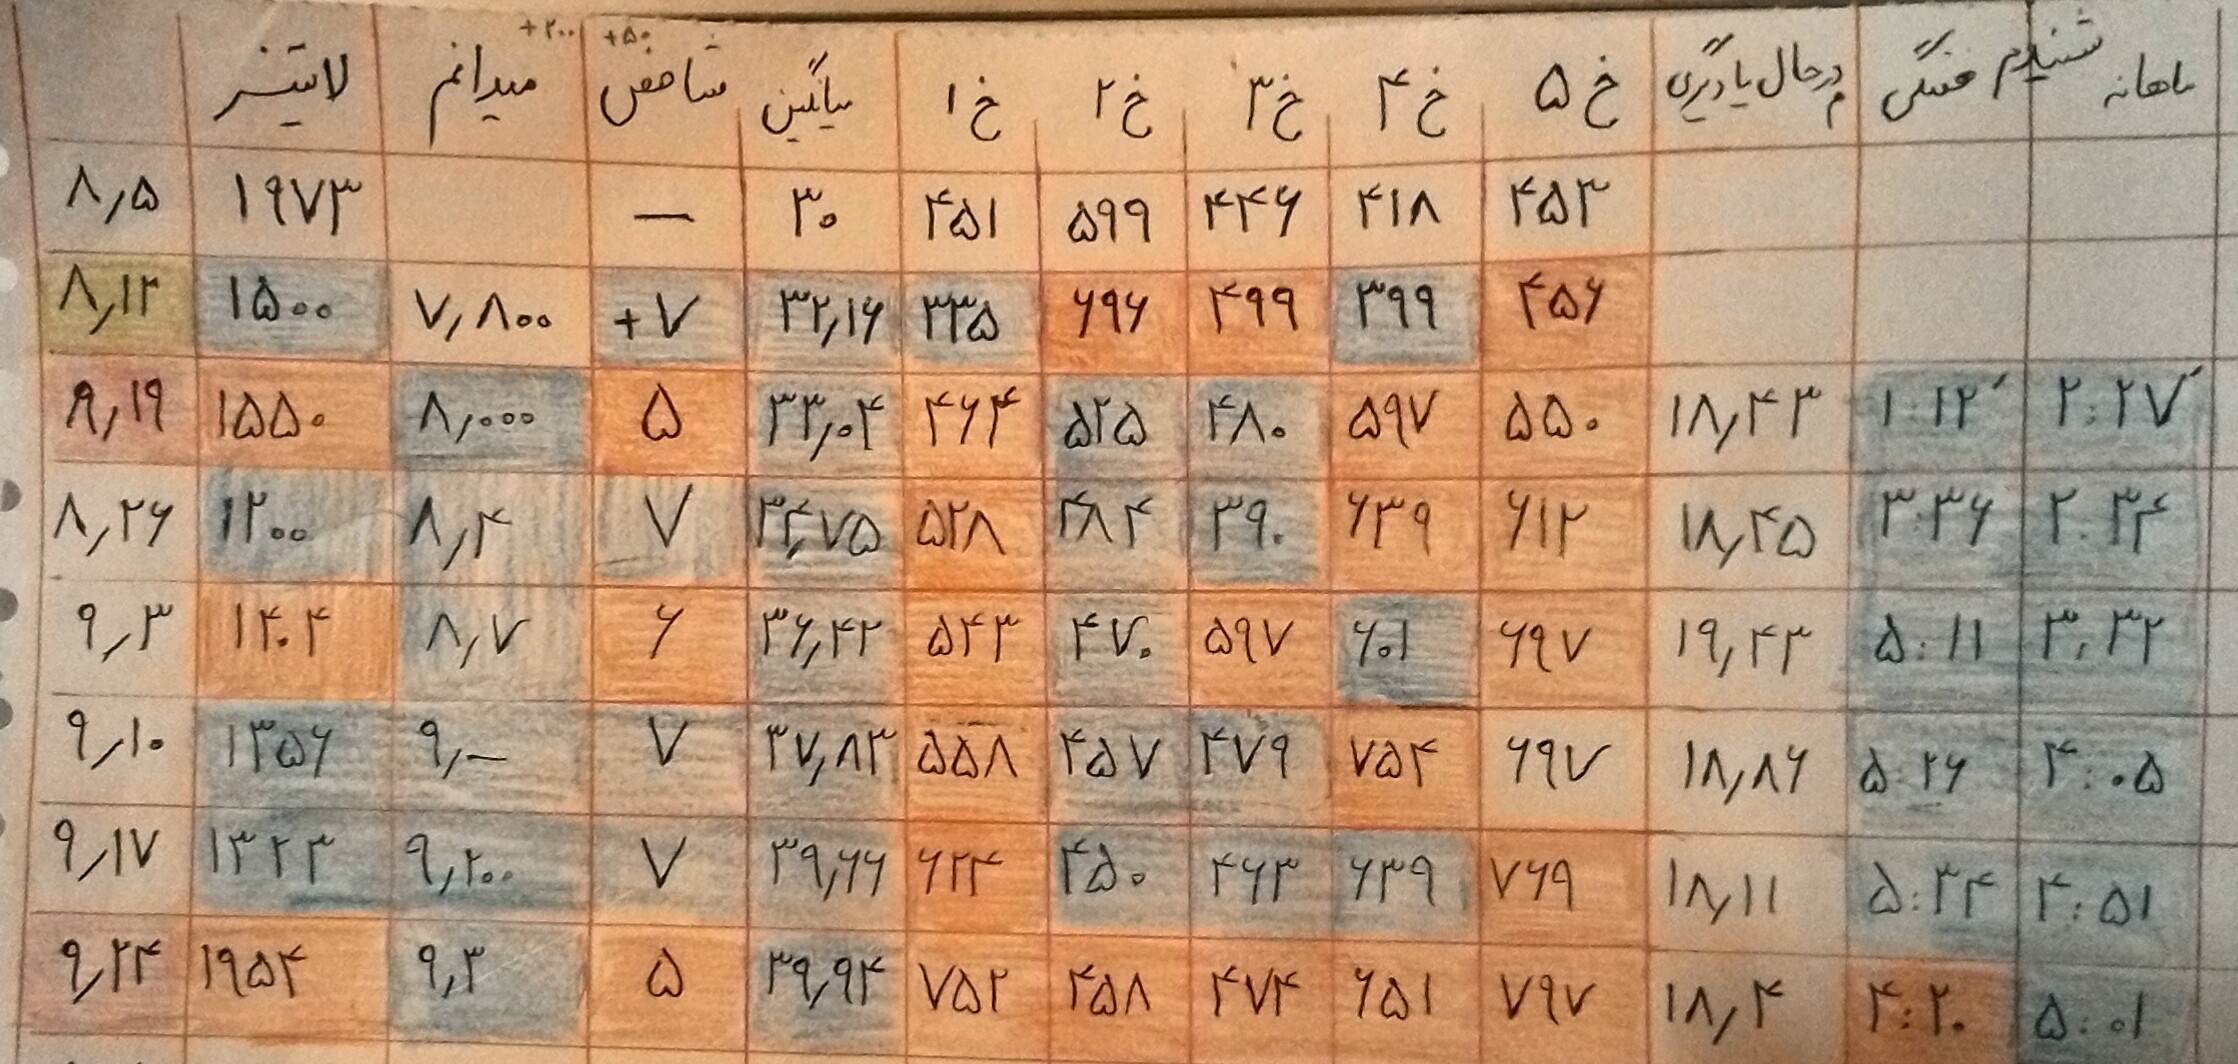 لایتنر میدانم +۲۰۰ شاخص +۵۰ میانگین خ ۱ خ ۲ خ ۳ خ ۴ خ ۵ درحال یادگیری م شنیدم هفتگی ماهانه
۸٫۵ ۱۹۷۳ — ۳۰ ۴۵۱ ۵۹۹ ۴۴۶ ۴۱۸ ۴۵۳
۸٫۱۲ ۱۵۰۰ ۷٫۸۰۰ +۷ ۳۲٫۱۶ ۳۳۵ ۶۹۶ ۴۹۹ ۳۹۹ ۴۵۶
۸٫۱۹ ۱۵۵۰ ۸٫۰۰۰ ۵ ۳۳٫۰۴ ۴۶۴ ۵۲۵ ۴۸۰ ۵۹۷ ۵۵۰ ۱۸٫۴۳ ۱:۱۲′ ۲:۲۷′
۸٫۲۶ ۱۲۰۰ ۸٫۴ ۷ ۳۴٫۷۵ ۵۲۸ ۴۸۴ ۳۹۰ ۶۳۹ ۶۱۲ ۱۸٫۴۵ ۳:۳۶ ۲:۳۴
۹٫۳ ۱۴۰۴ ۸٫۷ ۶ ۳۶٫۴۲ ۵۴۳ ۴۷۰ ۵۹۷ ۶۰۱ ۶۹۷ ۱۹٫۴۳ ۵:۱۱ ۳:۳۲
۹٫۱۰ ۱۳۵۶ ۹٫— ۷ ۳۷٫۸۳ ۵۵۸ ۴۵۷ ۴۷۹ ۷۵۴ ۶۹۷ ۱۸٫۸۶ ۵:۲۶ ۴:۰۵
۹٫۱۷ ۱۳۲۳ ۹٫۲۰۰ ۷ ۳۹٫۶۶ ۶۲۴ ۴۵۰ ۴۶۳ ۶۳۹ ۷۶۹ ۱۸٫۱۱ ۵:۳۴ ۴:۵۱
۹٫۲۴ ۱۹۵۴ ۹٫۳ ۵ ۳۹٫۹۴ ۷۵۲ ۴۵۸ ۴۷۴ ۶۵۱ ۷۹۷ ۱۸٫۴ ۴:۲۰ ۵:۰۱